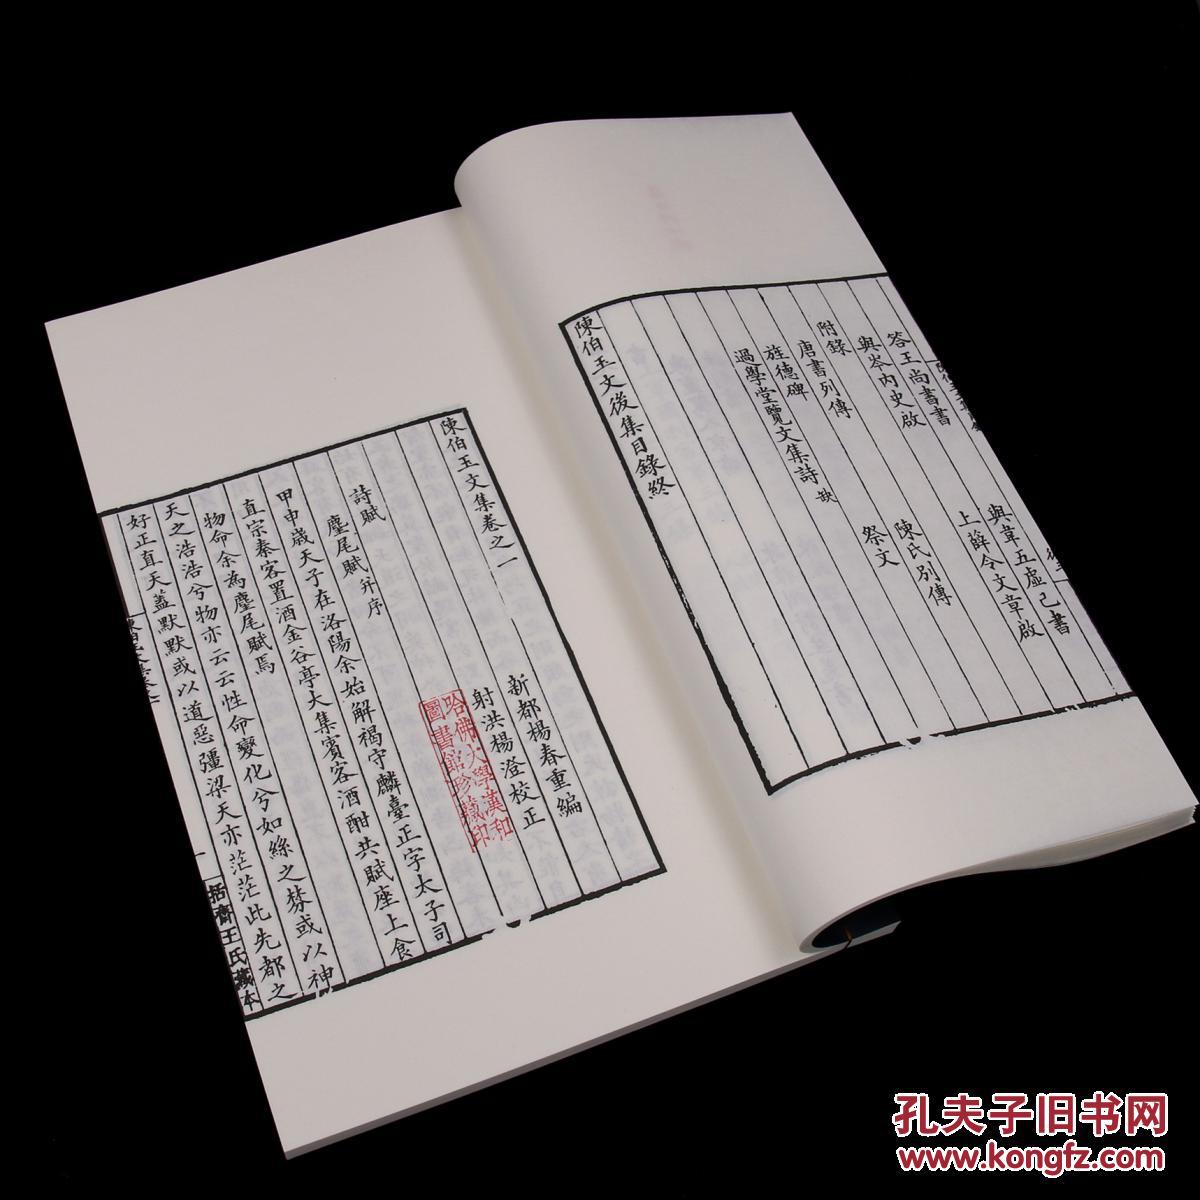 答王尚書書
與韋五虛己書
與岑內史啟
上薛令文章啟
附錄
唐書列傳
陳氏別傳
旌德碑
祭文
過學堂覽文集詩 缺
陳伯玉文後集目錄終
陳伯玉文集卷之一
新都楊春重編
射洪楊澄校正
哈佛大學漢和
圖書館珍藏印
詩賦
麈尾賦并序
甲申歲天子在洛陽余始解褐守麟臺正字太子司
直宗秦客置酒金谷亭大集賓客酒酣共賦座上食
物命余為麈尾賦焉
天之浩浩兮物亦云云性命變化兮如絲之棼或以神
好正直天蓋默默或以道惡彊梁天亦茫茫此先都之
一
括齋王氏藏本
孔夫子旧书网
www.kongfz.com